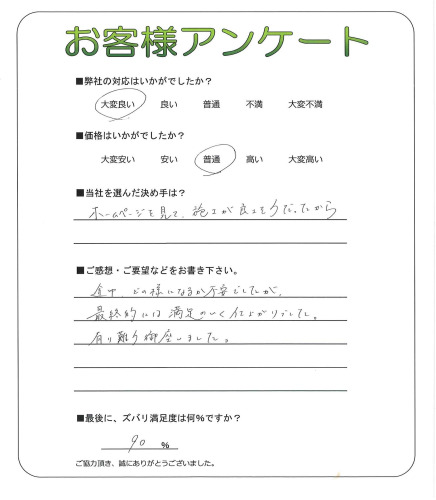 お客様アンケート
■弊社の対応はいかがでしたか？
大変良い 良い 普通 不満 大変不満
■価格はいかがでしたか？
大変安い 安い 普通 高い 大変高い
■当社を選んだ決め手は？
ホームページを見て、施工が良さそうだったから
■ご感想・ご要望などをお書き下さい。
途中、どの様になるか不安でしたが、
最終的には満足のいく仕上がりでした。
有り難う御座いました。
■最後に、ズバリ満足度は何%ですか？
90 %
ご協力頂き、誠にありがとうございました。